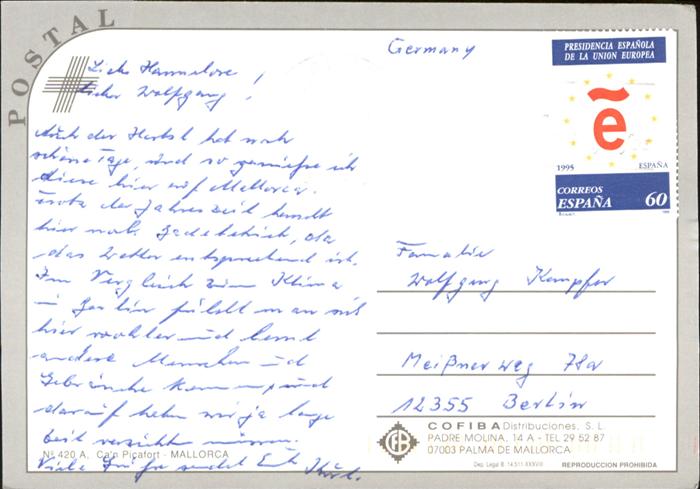 POSTAL
Germany
PRESIDENCIA ESPAÑOLA
DE LA UNION EUROPEA
ẽ
1995 ESPAÑA
CORREOS
ESPAÑA 60
Liebe Hannelore!
Lieber Wolfgang!
Auch der Herbst hat noch
schöne Tage und so genieße ich
diese hier auf Mallorca.
Trotz der Jahreszeit herrscht
hier noch Badebetrieb, da
das Wetter entsprechend ist.
Im Vergleich zum Klima
in Berlin fühlt man sich
hier wohler und lernt
andere Menschen und
Gebräuche kennen, und
darauf haben wir ja lange
Zeit verzichten müssen.
Viele Grüße sendet Euch
Familie
Wolfgang Kempfer
Meißner Weg 78a
12355 Berlin
Nº 420 A, Ca'n Picafort - MALLORCA
COFIBA Distribuciones, S. L.
PADRE MOLINA, 14 A - TEL 29 52 87
07003 PALMA DE MALLORCA
Dep. Legal B. 14.511-XXXVIII
REPRODUCCION PROHIBIDA